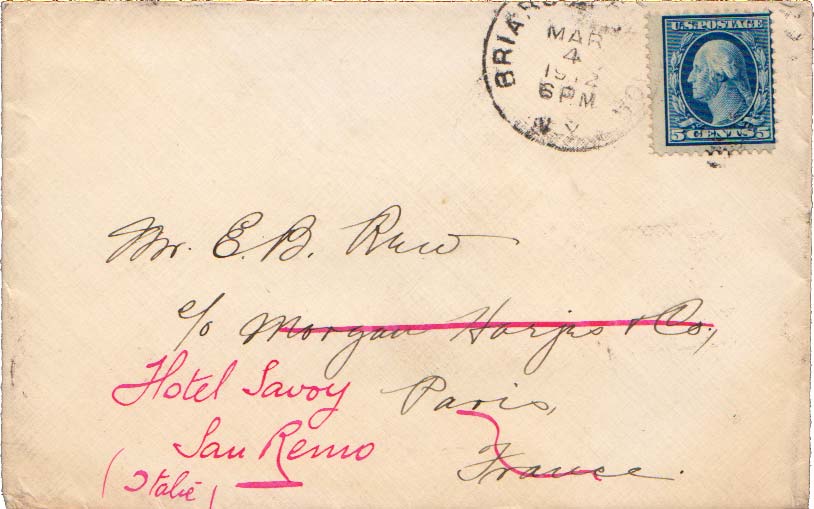 MAR
4
1912
6 PM
N.Y.
U.S. POSTAGE
5 CENTS 5
Mr. E. B. Rew
c/o Morgan Harjes & Co,
Hotel Savoy
Paris,
San Remo
France.
(Italie)